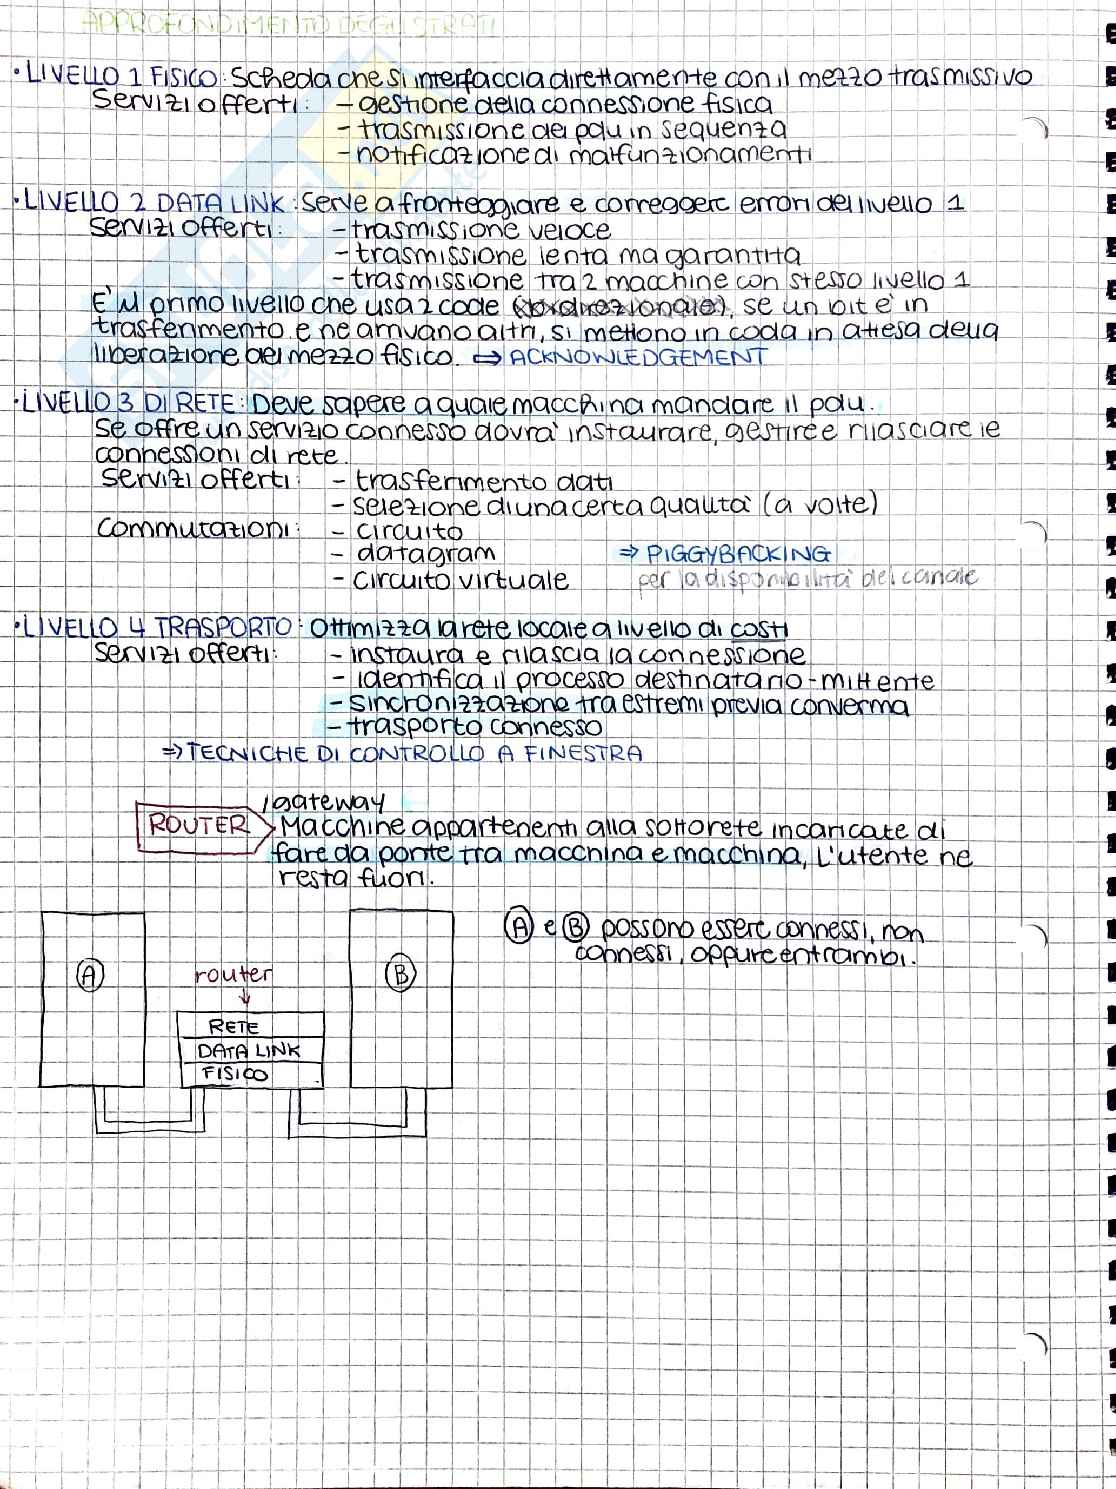 APPROFONDIMENTO DEGLI STRATI
• LIVELLO 1 FISICO: Scheda che si interfaccia direttamente con il mezzo trasmissivo
Servizi offerti: - gestione della connessione fisica
- trasmissione dei pdu in sequenza
- notificazione di malfunzionamenti
• LIVELLO 2 DATA LINK: Serve a fronteggiare e correggere errori del livello 1
Servizi offerti: - trasmissione veloce
- trasmissione lenta ma garantita
- trasmissione tra 2 macchine con stesso livello 1
E' il primo livello che usa 2 code, se un bit è in
trasferimento e ne arrivano altri, si mettono in coda in attesa della
liberazione del mezzo fisico. ⇒ ACKNOWLEDGEMENT
• LIVELLO 3 DI RETE: Deve sapere a quale macchina mandare il pdu.
Se offre un servizio connesso dovrà instaurare, gestire e rilasciare le
connessioni di rete.
Servizi offerti: - trasferimento dati
- selezione di una certa qualità (a volte)
Commutazioni: - circuito
- datagram ⇒ PIGGYBACKING
- circuito virtuale per la disponibilità del canale
• LIVELLO 4 TRASPORTO: Ottimizza la rete locale a livello di costi
Servizi offerti: - instaura e rilascia la connessione
- identifica il processo destinatario-mittente
- sincronizzazione tra estremi previa converma
- trasporto connesso
⇒ TECNICHE DI CONTROLLO A FINESTRA
/gateway
ROUTER Macchine appartenenti alla sottorete incaricate di
fare da ponte tra macchina e macchina, L'utente ne
resta fuori.
A e B possono essere connessi, non
connessi, oppure entrambi.
A router B
RETE
DATA LINK
FISICO